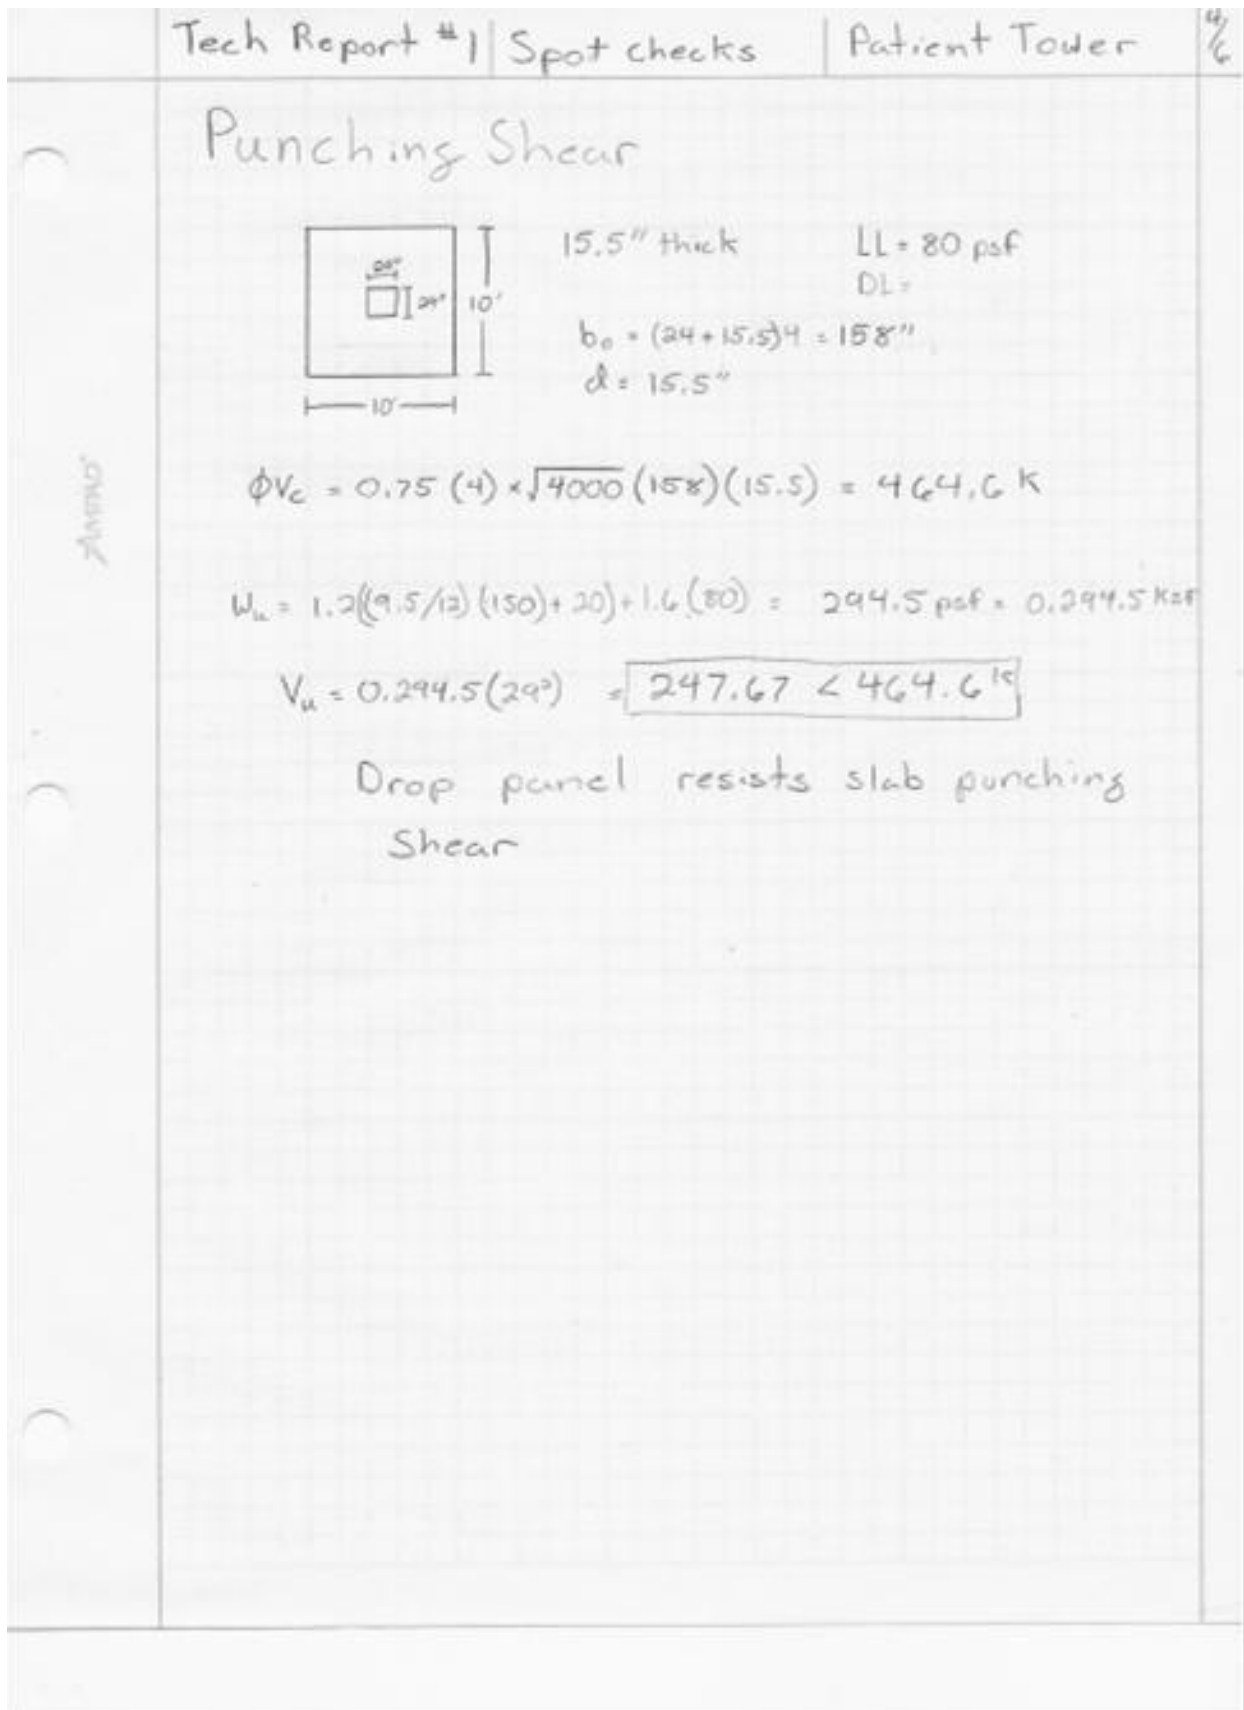 Tech Report #1 | Spot checks | Patient Tower 4/6
Punching Shear
15.5" thick LL = 80 psf
24" 24" 10' DL =
b₀ = (24 + 15.5)4 = 158"
d = 15.5"
10'
AMPAD
ϕVc = 0.75 (4) × √4000 (158)(15.5) = 464.6 K
Wu = 1.2((9.5/12)(150) + 20) + 1.6(80) = 294.5 psf = 0.294.5 Ksf
Vu = 0.294.5(29²) = 247.67 < 464.6 k
Drop panel resists slab punching
Shear